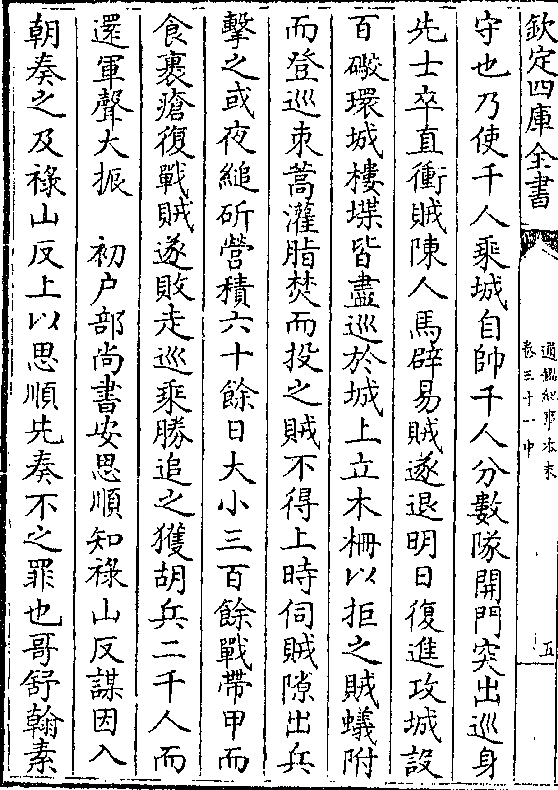 欽定四庫全書
通鑑紀事本末
卷三十一中
五
守也乃使千人乘城自帥千人分數隊開門突出巡身
先士卒直衝賊陳人馬辟易賊遂退明日復進攻城設
百礮環城樓堞皆盡巡於城上立木柵以拒之賊蟻附
而登巡朿蒿灌脂焚而投之賊不得上時伺賊隙出兵
擊之或夜縋斫營積六十餘日大小三百餘戰帶甲而
食裹瘡復戰賊遂敗走巡乘勝追之獲胡兵二千人而
還軍聲大振　初户部尚書安思順知祿山反謀因入
朝奏之及祿山反上以思順先奏不之罪也哥舒翰素